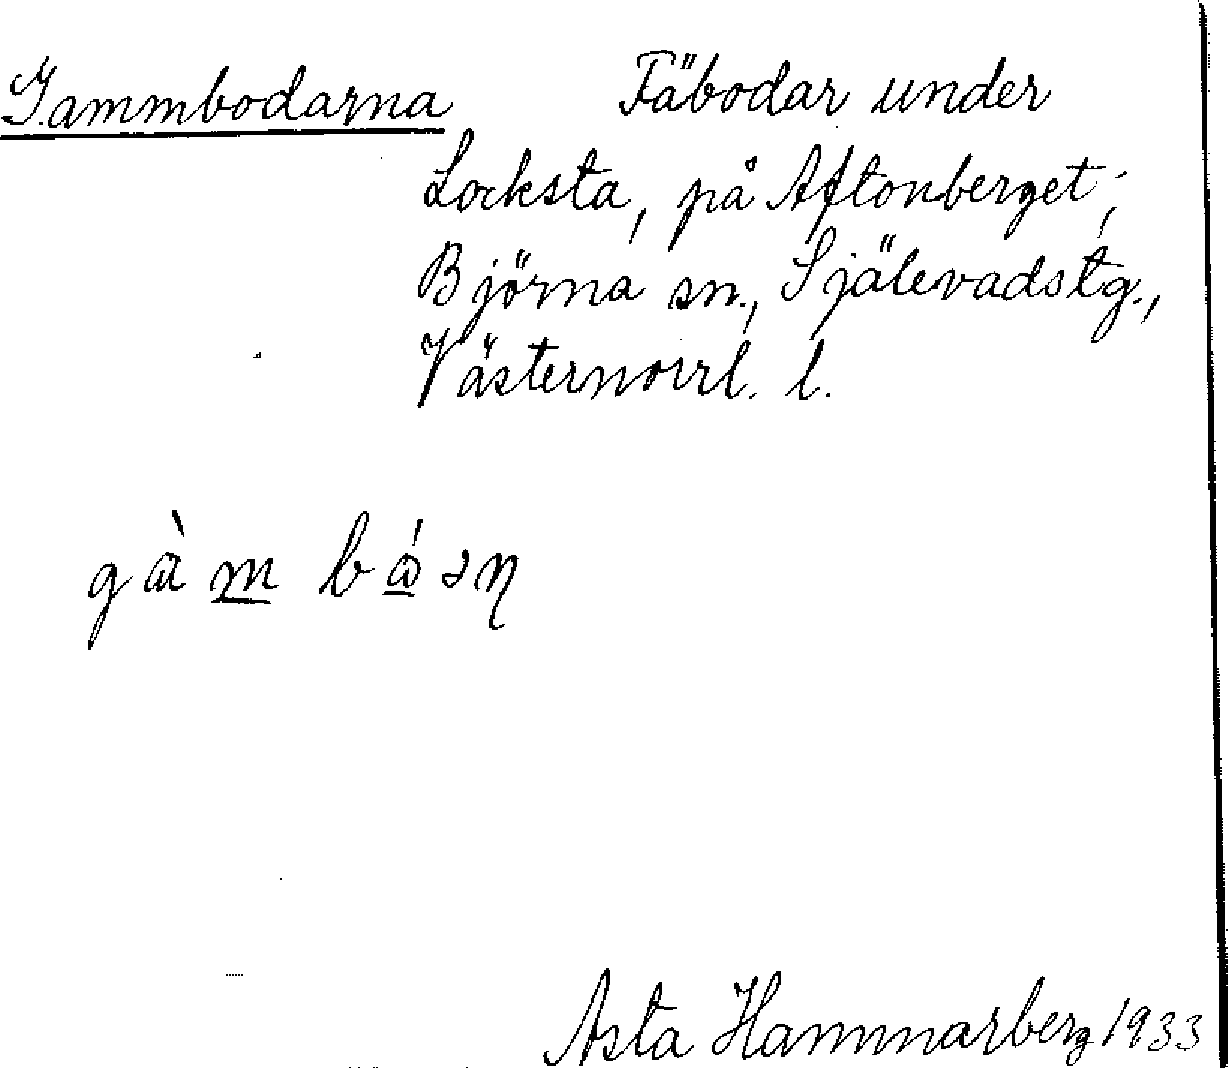 Gammbodarna Fäbodar under
Locksta, på Aftonberget;
Björna sn., Själevadstg.,
Västernorrl. l.
gàm bɷ́əɳ
Asta Hammarberg 1933